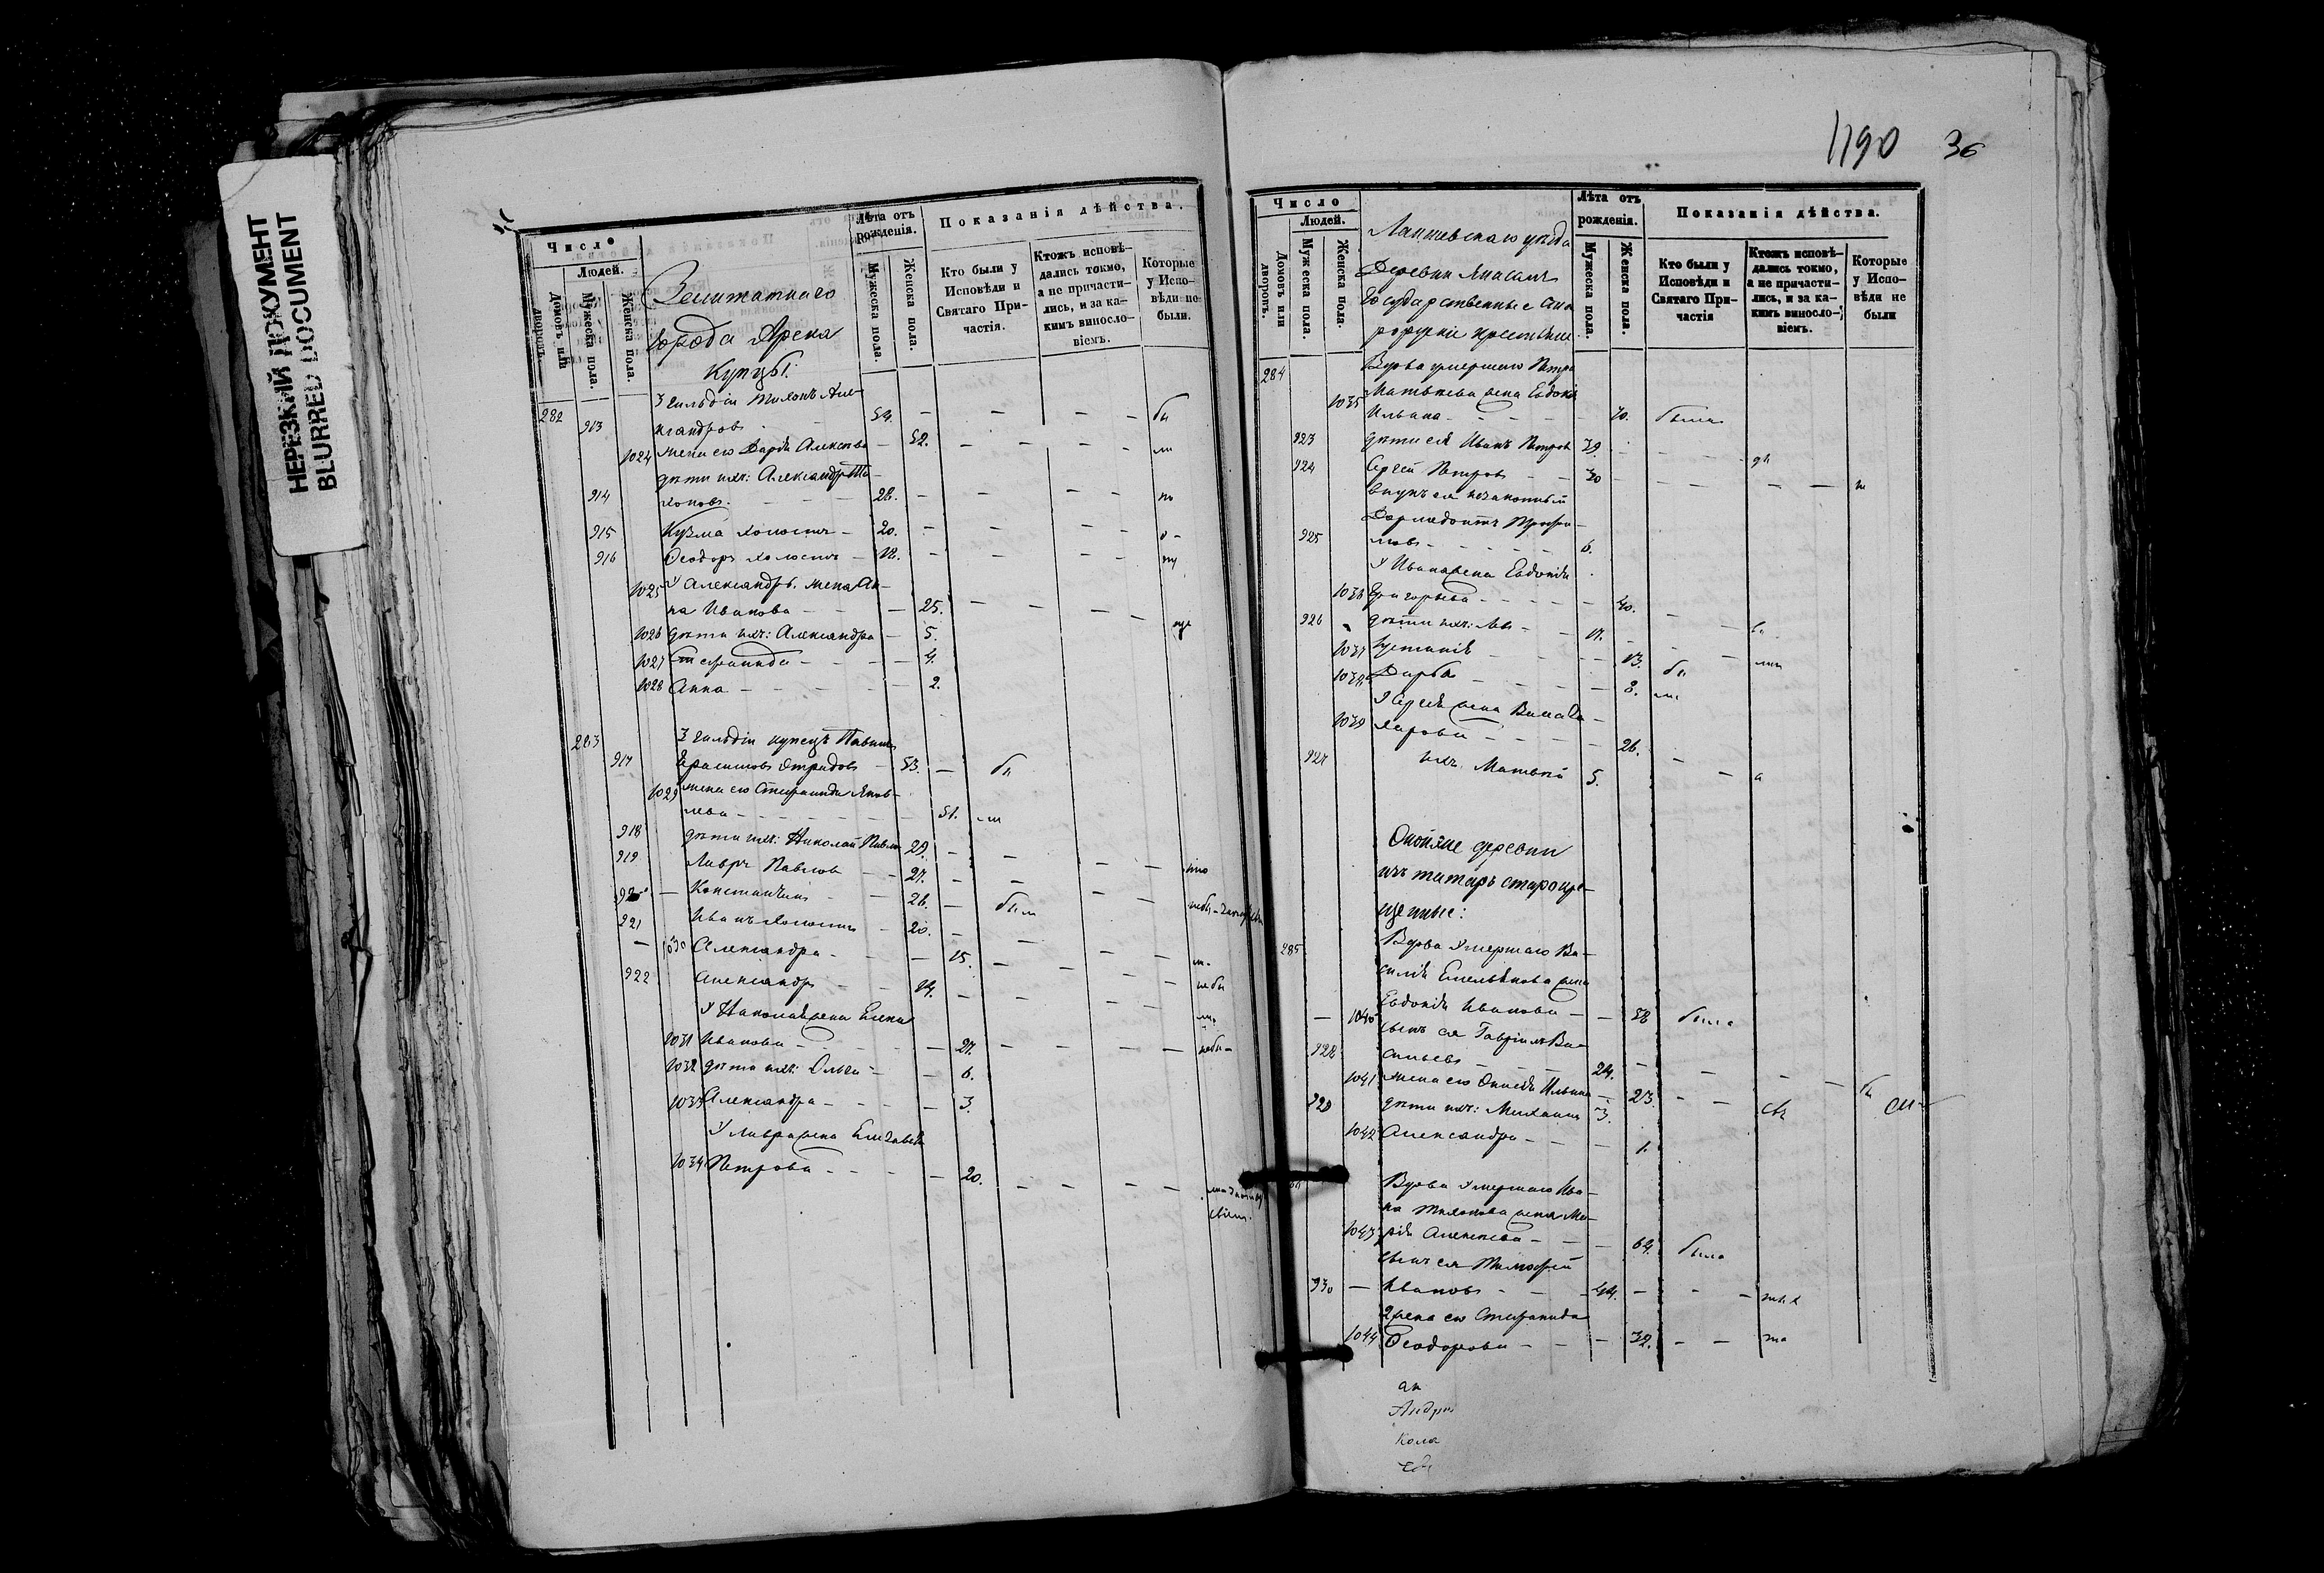 НЕРЕЗКИЙ ДОКУМЕНТ
BLURRED DOCUMENT
Число
Людей.
Домовъ или дворовъ.
Мужеска пола.
Женска пола.
Заштатнаго
города Арска
Купцы:
Лѣта отъ рожденія.
Мужеска пола.
Женска пола.
Показанія дѣйства.
Кто были у Исповѣди и Святаго Причастія.
Ктожъ исповѣдались токмо, а не причастились, и за какимъ винословіемъ.
Которые у Исповѣди не были.
282
3 гильдіи Тихонъ Але-
913 ксандровъ 54.
1024 жена его Дарія Алексѣева 52.
дѣти ихъ: Александръ Ти-
914 хоновъ 28.
915 Кузма холостъ 20.
916 Ѳеодоръ холостъ 18.
У Александра жена Ан-
1025 на Иванова 25.
1026 дѣти ихъ: Александра 5.
1027 4.
1028 Анна 2.
283 3 гильдіи купецъ Павелъ
917 53.
1029 жена его Стефанида Яков-
лева 51.
918 дѣти ихъ: Николай Павловъ 29.
919 Лавръ Павловъ 27.
920 Константинъ 26.
921 Иванъ холостъ 20.
1030 Александра 15.
922 Александръ 14.
У Николая жена Елена
1031 Иванова 27.
1032 дѣти ихъ: Ольга 6.
1033 Александра 3.
У Лавра жена Елизавета
1034 Петрова 20.
1190 36
Число
Людей.
Домовъ или дворовъ.
Мужеска пола.
Женска пола.
Лаишевскаго уѣзда
Деревни
Государственные
крестьяне
Лѣта отъ рожденія.
Мужеска пола.
Женска пола.
Показанія дѣйства.
Кто были у Исповѣди и Святаго Причастія
Ктожъ исповѣдались токмо, а не причастились, и за какимъ винословіемъ.
Которые у Исповѣди не были
284 Вдова умершаго Петра
Матвѣева жена Евдокія
1035 Ильина 70. была
923 дѣти ея Иванъ Петровъ 39.
924 Сергей Петровъ 30
внукъ ея незаконный
925 6.
У Ивана жена Евдокія
1036 Григорьева 40.
926 дѣти ихъ: Левъ 17.
1037 13.
1038 Дарья 8.
У Сергея жена
1039 26.
927 ихъ Матвѣй 5.
Оной же деревни
изъ татаръ старокре-
щеные:
285 Вдова умершаго Ва-
силія Емельянова жена
1040 Евдокія Иванова 58 была
сынъ ея Гавріилъ Ва-
928 сильевъ 24.
1041 жена его Ильина 23.
929 дѣти ихъ: Михаилъ 3.
1042 Александра 1.
Вдова умершаго Ива-
на Тихонова жена Ма-
1043 рія Алексѣева 64. была
сынъ ея Тимофей
930 Ивановъ 44.
2 жена его Стефанида
1044 Ѳеодорова 32.